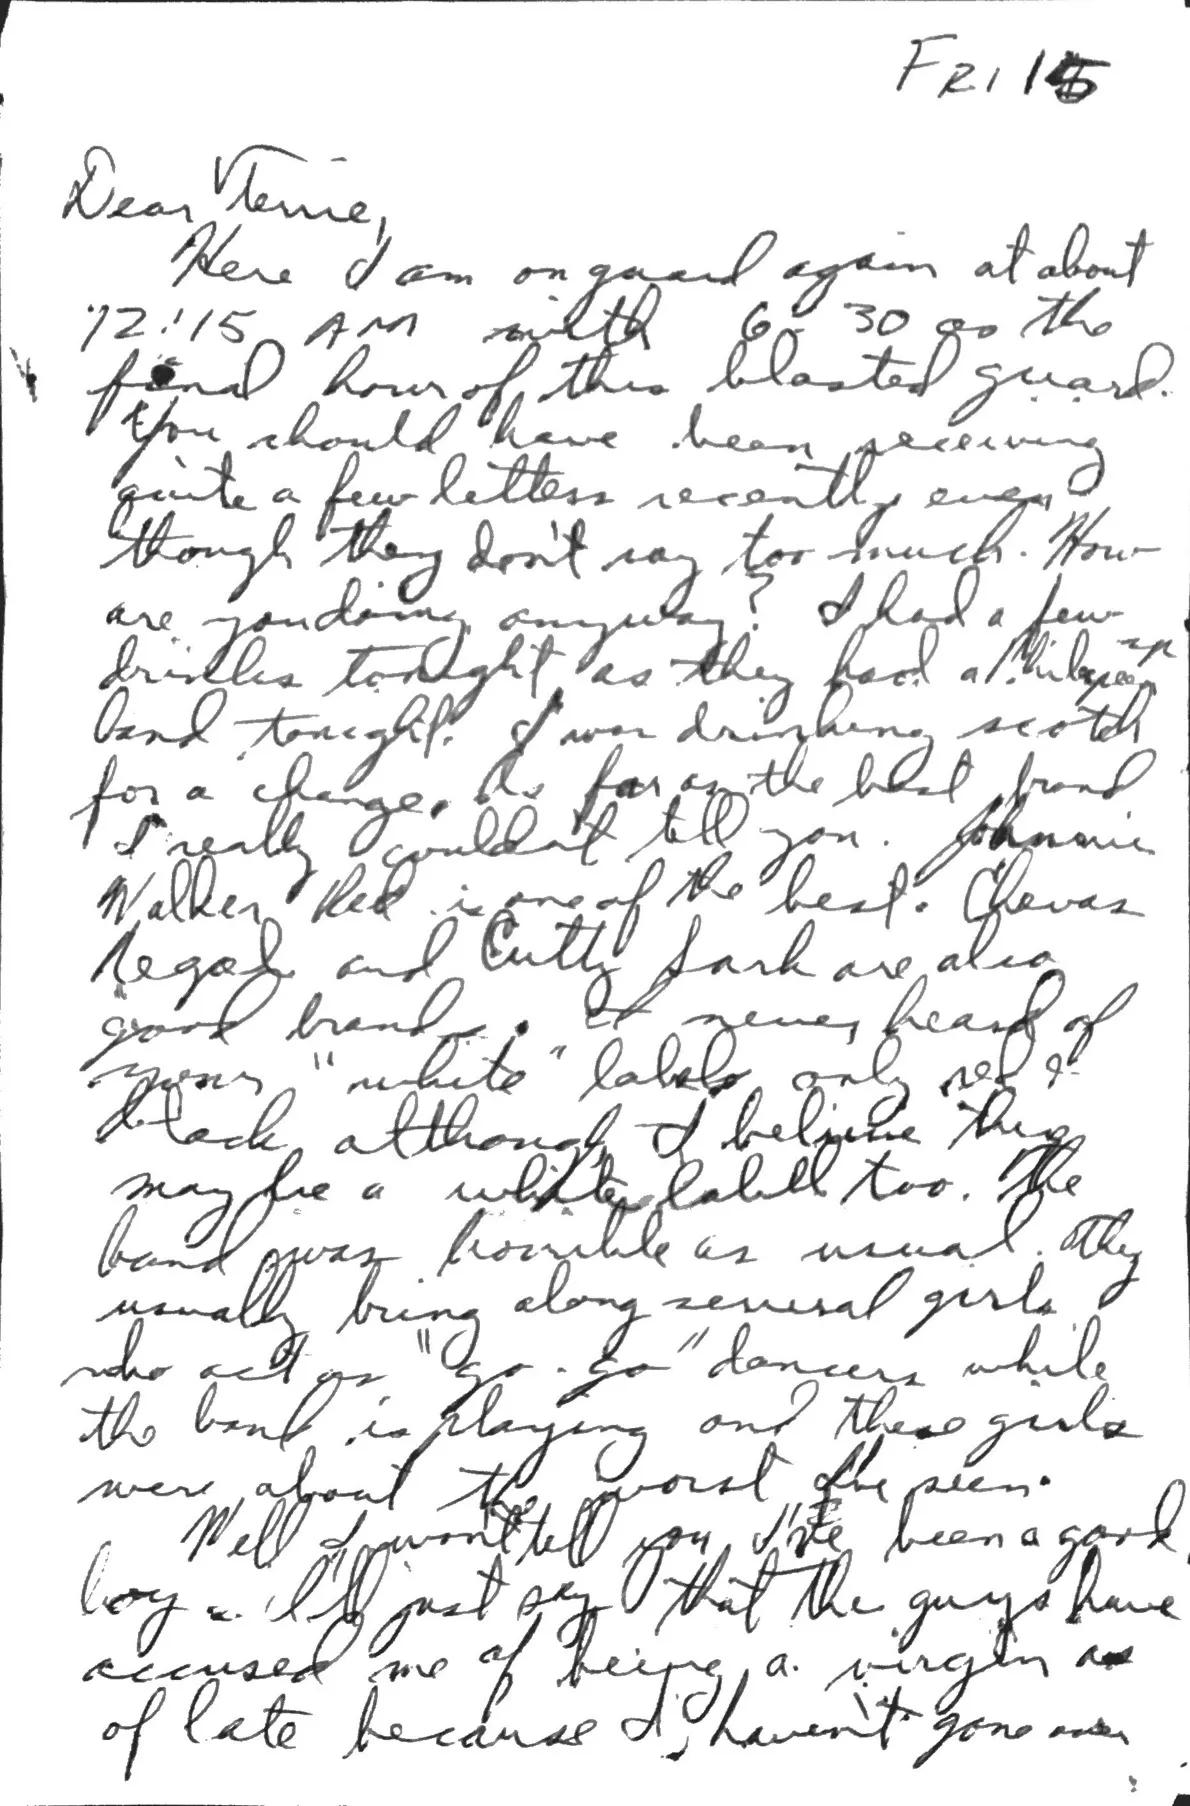 FRI 15
Dear Terrie,
Here I am on guard again at about
12:15 AM with 6:30 as the
final hour of this blasted guard.
You should have been receiving
quite a few letters recently even
though they don't say too much. How
are you doing anyway? I had a few
drinks tonight as they had a
band tonight. I was drinking scotch
for a change. As far as the best brand
I really couldn't tell you. Johnnie
Walker Red is one of the best. Chevas
Regal and Cutty Sark are also
good brands. I never heard of
your "white" label only red &
black although I believe there
may be a white label too. The
band was horrible as usual. They
usually bring along several girls
who act as "go-go" dancers while
the band is playing and these girls
were about the worst I've seen.
Well I won't tell you I've been a good
boy. I'll just say that the guys have
accused me of being a virgin as
of late because I haven't gone over